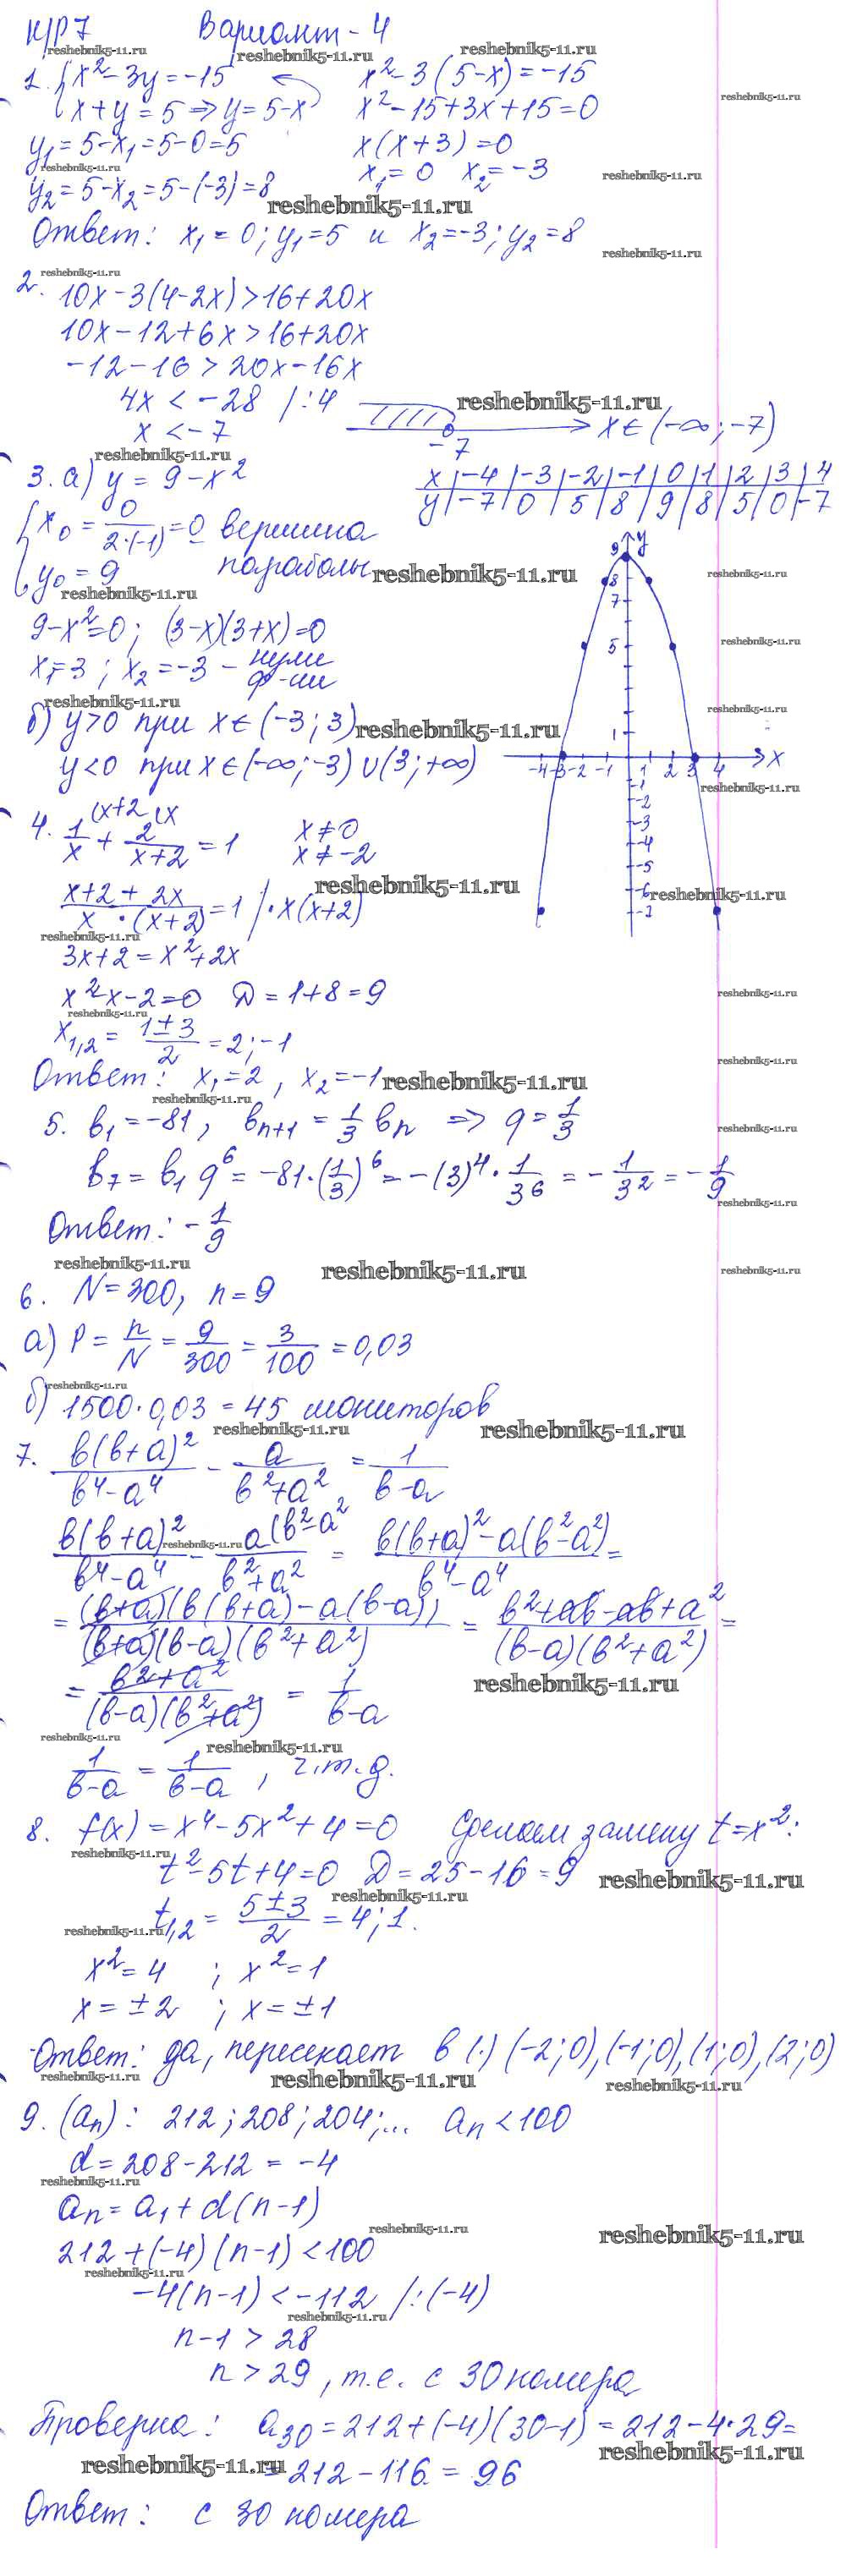 К/Р 7 Вариант - 4
1. { x² - 3y = -15
x + y = 5 => y = 5-x
x² - 3(5-x) = -15
x² - 15 + 3x + 15 = 0
x(x+3) = 0
x₁ = 0 x₂ = -3
y₁ = 5-x₁ = 5-0 = 5
y₂ = 5-x₂ = 5-(-3) = 8
Ответ: x₁ = 0; y₁ = 5 и x₂ = -3; y₂ = 8
2. 10x - 3(4-2x) > 16+20x
10x - 12 + 6x > 16+20x
-12-16 > 20x-16x
4x < -28 /:4
x < -7
-7
x ∈ (-∞; -7)
3. а) y = 9-x²
x | -4 | -3 | -2 | -1 | 0 | 1 | 2 | 3 | 4
y | -7 | 0 | 5 | 8 | 9 | 8 | 5 | 0 | -7
{ x₀ = 0/(2·(-1)) = 0 вершина
y₀ = 9 параболы
9-x² = 0; (3-x)(3+x) = 0
x₁ = 3; x₂ = -3 - нули ф-ии
б) y>0 при x ∈ (-3; 3)
y<0 при x ∈ (-∞; -3) ∪ (3; +∞)
4. 1/x (x+2 + 2/(x+2) (x = 1 x ≠ 0
x ≠ -2
(x+2+2x)/(x·(x+2)) = 1 /·x(x+2)
3x+2 = x²+2x
x²-x-2 = 0 D = 1+8 = 9
x₁,₂ = (1±3)/2 = 2; -1
Ответ: x₁ = 2, x₂ = -1
5. b₁ = -81, bₙ₊₁ = 1/3 bₙ => q = 1/3
b₇ = b₁ q⁶ = -81·(1/3)⁶ = -(3)⁴·1/3⁶ = -1/3² = -1/9
Ответ: -1/9
6. N = 300, n = 9
а) P = n/N = 9/300 = 3/100 = 0,03
б) 1500·0,03 = 45 мониторов
7. b(b+a)²/(b⁴-a⁴) - a/(b²+a²) = 1/(b-a)
b(b+a)²/(b⁴-a⁴) - a(b²-a²/(b²+a²) = (b(b+a)²-a(b²-a²))/(b⁴-a⁴) =
= (b+a)(b(b+a)-a(b-a))/((b+a)(b-a)(b²+a²)) = (b²+ab-ab+a²)/((b-a)(b²+a²)) =
= (b²+a²)/((b-a)(b²+a²)) = 1/(b-a)
1/(b-a) = 1/(b-a), ч.т.д.
8. f(x) = x⁴-5x²+4 = 0 Сделаем замену t = x²:
t²-5t+4 = 0 D = 25-16 = 9
t₁,₂ = (5±3)/2 = 4; 1.
x² = 4 ; x² = 1
x = ±2 ; x = ±1
Ответ: да, пересекает в (·) (-2;0), (-1;0), (1;0), (2;0)
9. (aₙ): 212; 208; 204;... aₙ < 100
d = 208-212 = -4
aₙ = a₁+d(n-1)
212+(-4)(n-1) < 100
-4(n-1) < -112 /:(-4)
n-1 > 28
n > 29, т.е. с 30 номера
Проверка: a₃₀ = 212+(-4)(30-1) = 212-4·29 =
= 212-116 = 96
Ответ: с 30 номера
reshebnik5-11.ru